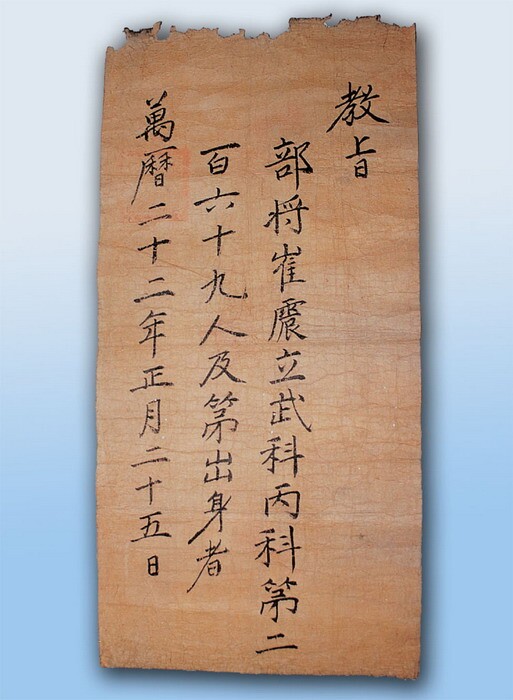 教旨
部将崔震立武科丙科第二
百六十九人及第出身者
萬暦二十二年正月二十五日